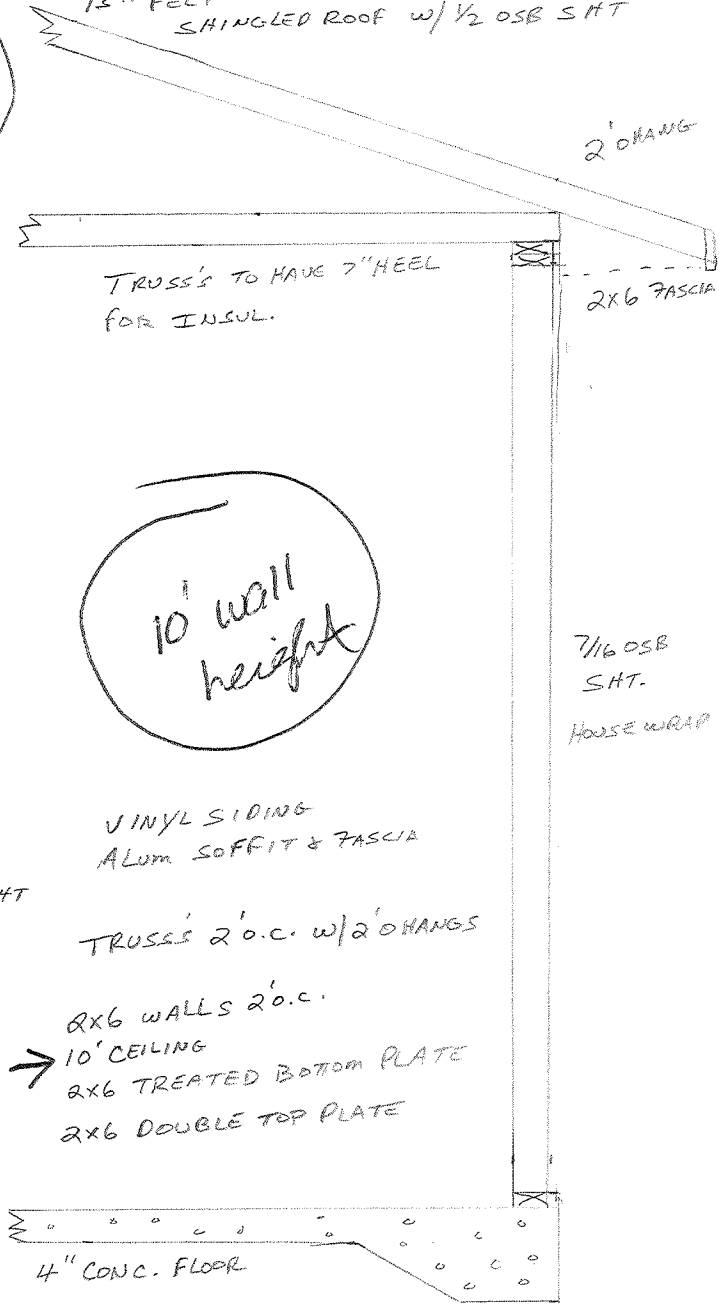 15# FELT
SHINGLED ROOF W/ 1/2 OSB SHT
2' OHANG
TRUSS'S TO HAVE 7" HEEL
FOR INSUL.
2X6 FASCIA
10' wall
height
7/16 OSB
SHT.
HOUSE WRAP
VINYL SIDING
ALUM SOFFIT & FASCIA
HT
TRUSS'S 2' O.C. W/ 2' OHANGS
2X6 WALLS 2' O.C.
10' CEILING
2X6 TREATED BOTTOM PLATE
2X6 DOUBLE TOP PLATE
4" CONC. FLOOR